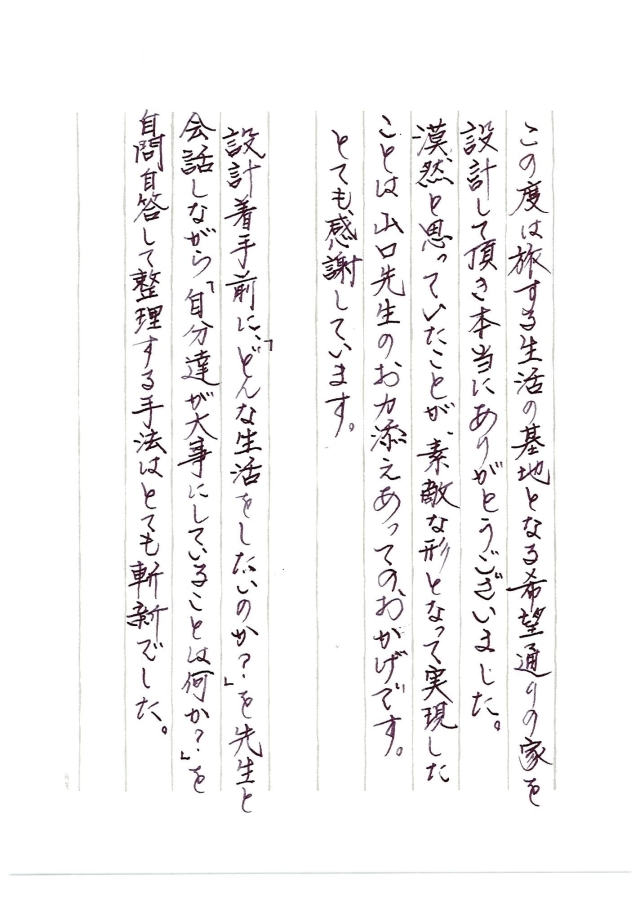 この度は旅する生活の基地となる希望通りの家を
設計して頂き本当にありがとうございました。
漠然と思っていたことが、素敵な形となって実現した
ことは山口先生のお力添えあっての、おかげです。
とても、感謝しています。
設計着手前に、「どんな生活をしたいのか？」を先生と
会話しながら「自分達が大事にしていることは何か？」を
自問自答して整理する手法はとても斬新でした。